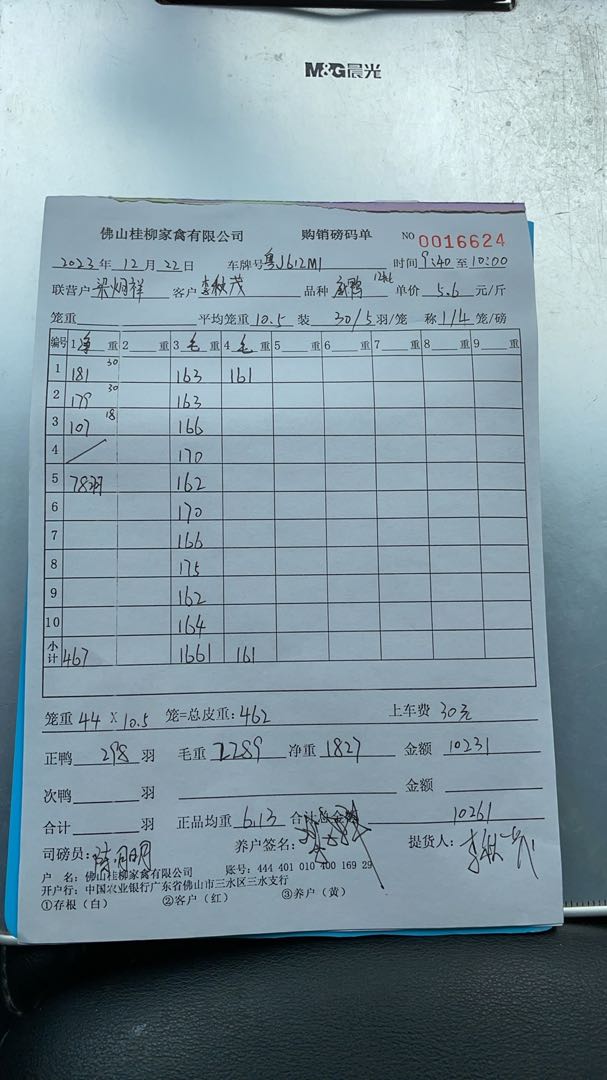 M&G晨光
佛山桂柳家禽有限公司 购销磅码单 NO 0016624
2023年12月22日 车牌号 粤J612M1 时间 9:40 至 10:00
联营户 梁炯祥 客户 茂 品种 鸭 单价 5.6 元/斤
笼重 平均笼重 10.5 装 30/5 羽/笼 称 1/4 笼/磅
编号 1净重 2 重 3毛重 4毛重 5 重 6 重 7 重 8 重 9 重
1 181 30 163 161
2 179 30 163
3 107 18 166
4 / 170
5 78羽 162
6 170
7 166
8 175
9 162
10 164
小计 467 1661 161
笼重 44 X 10.5 笼=总皮重:462 上车费 30元
正鸭 298 羽 毛重 2289 净重 1827 金额 10231
次鸭 羽 金额
合计 羽 正品均重 6.13 合计总金额 10261
司磅员: 养户签名: 提货人:
户 名: 佛山桂柳家禽有限公司 账号: 444 401 010 400 169 29
开户行: 中国农业银行广东省佛山市三水区三水支行
①存根(白) ②客户(红) ③养户(黄)